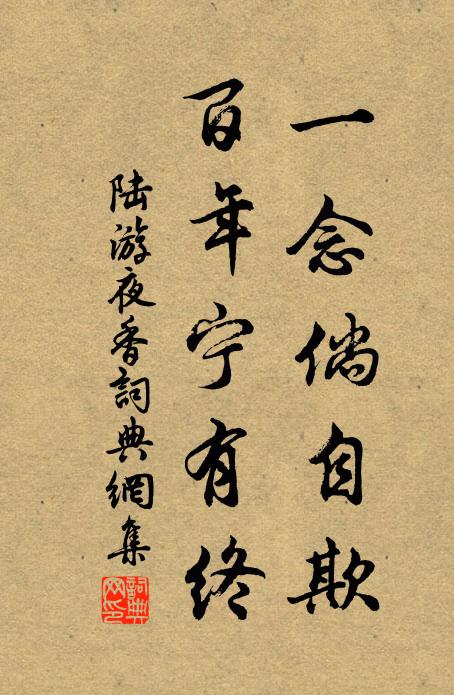 一念倘自欺
百年宁有终
陆游夜香詞典網集
詞典
网印